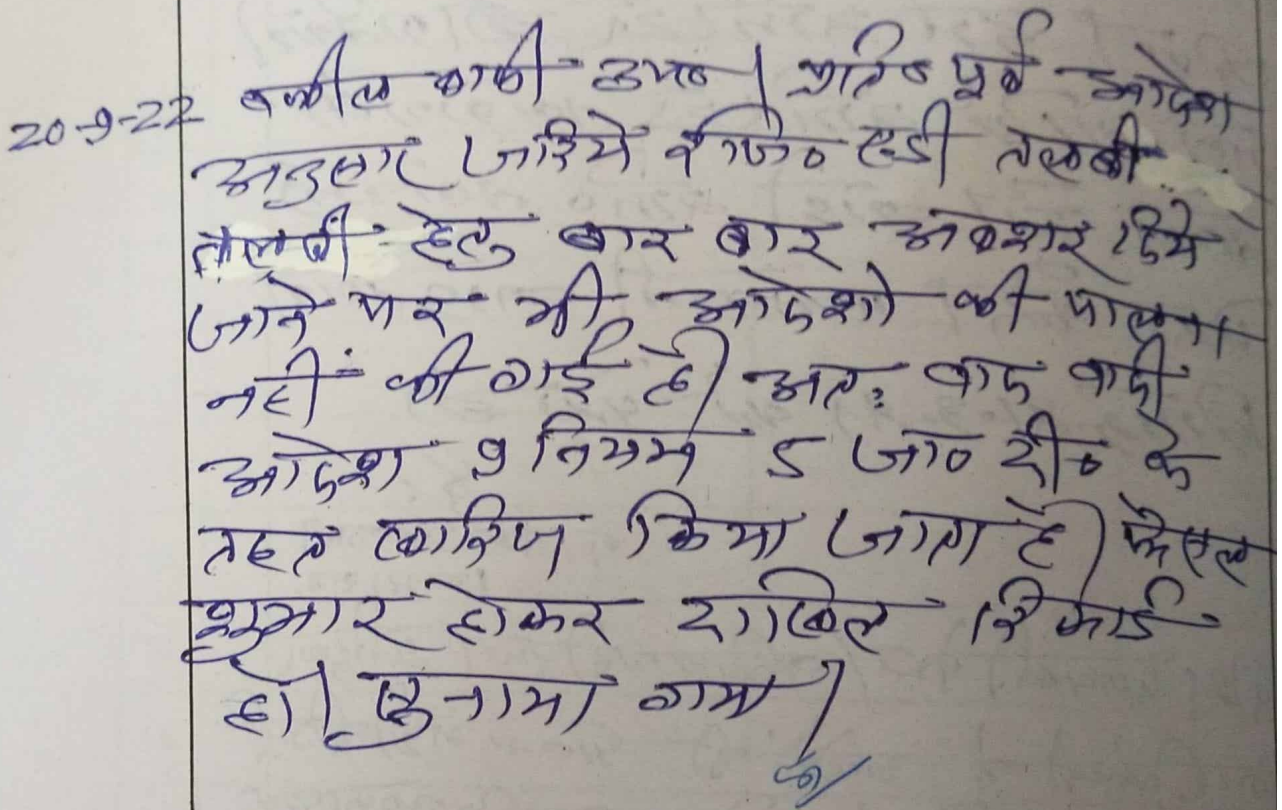 20-9-22 वकील वादी उप० । प्रति० पूर्व आदेश
अनुसार जरिये रजि० एडी तलबी
तलबी हेतु बार बार अवशर दिये
जाने पर भी आदेशो की पालना
नही की गई है। अतः वाद वादी
आदेश 9 नियम 5 जा० दी० के
तहत खारिज किया जाता है। फैसल
शुमार होकर दाखिल रिकार्ड
हो। सुनाया गया।